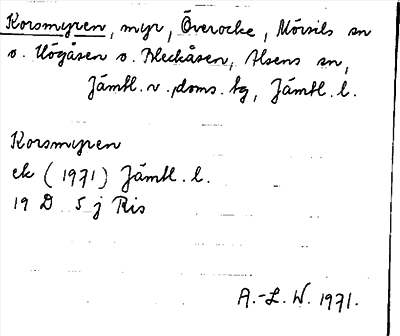 Korsmyren, myr, Överocke, Mörsils sn
o. Högåsen o. Bleckåsen, Alsens sn,
Jämtl. v. doms. tg, Jämtl. l.
Korsmyren
ek (1971) Jämtl. l.
19 D 5 j Ris
A.-L. W. 1971.